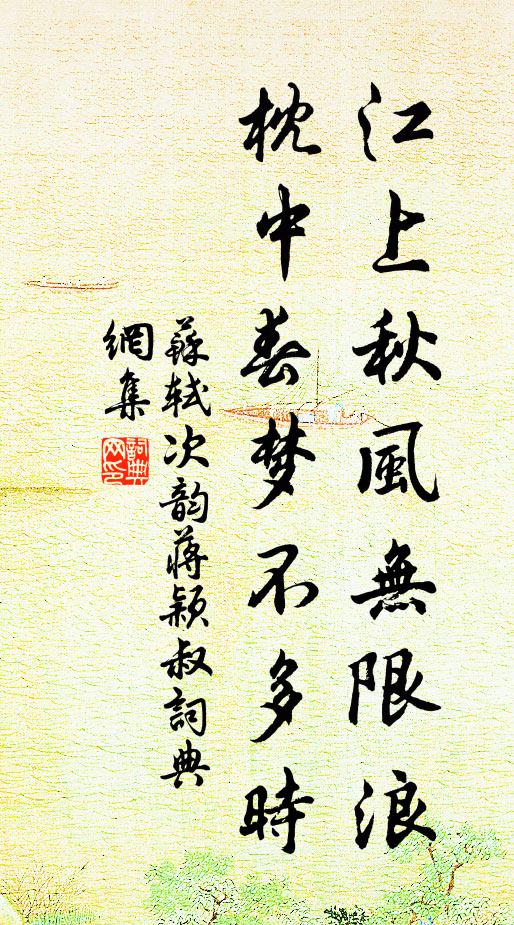 江上秋風無限浪
枕中春梦不多時
蘇軾次韵蔣颖叔詞典
網集
詞典网印